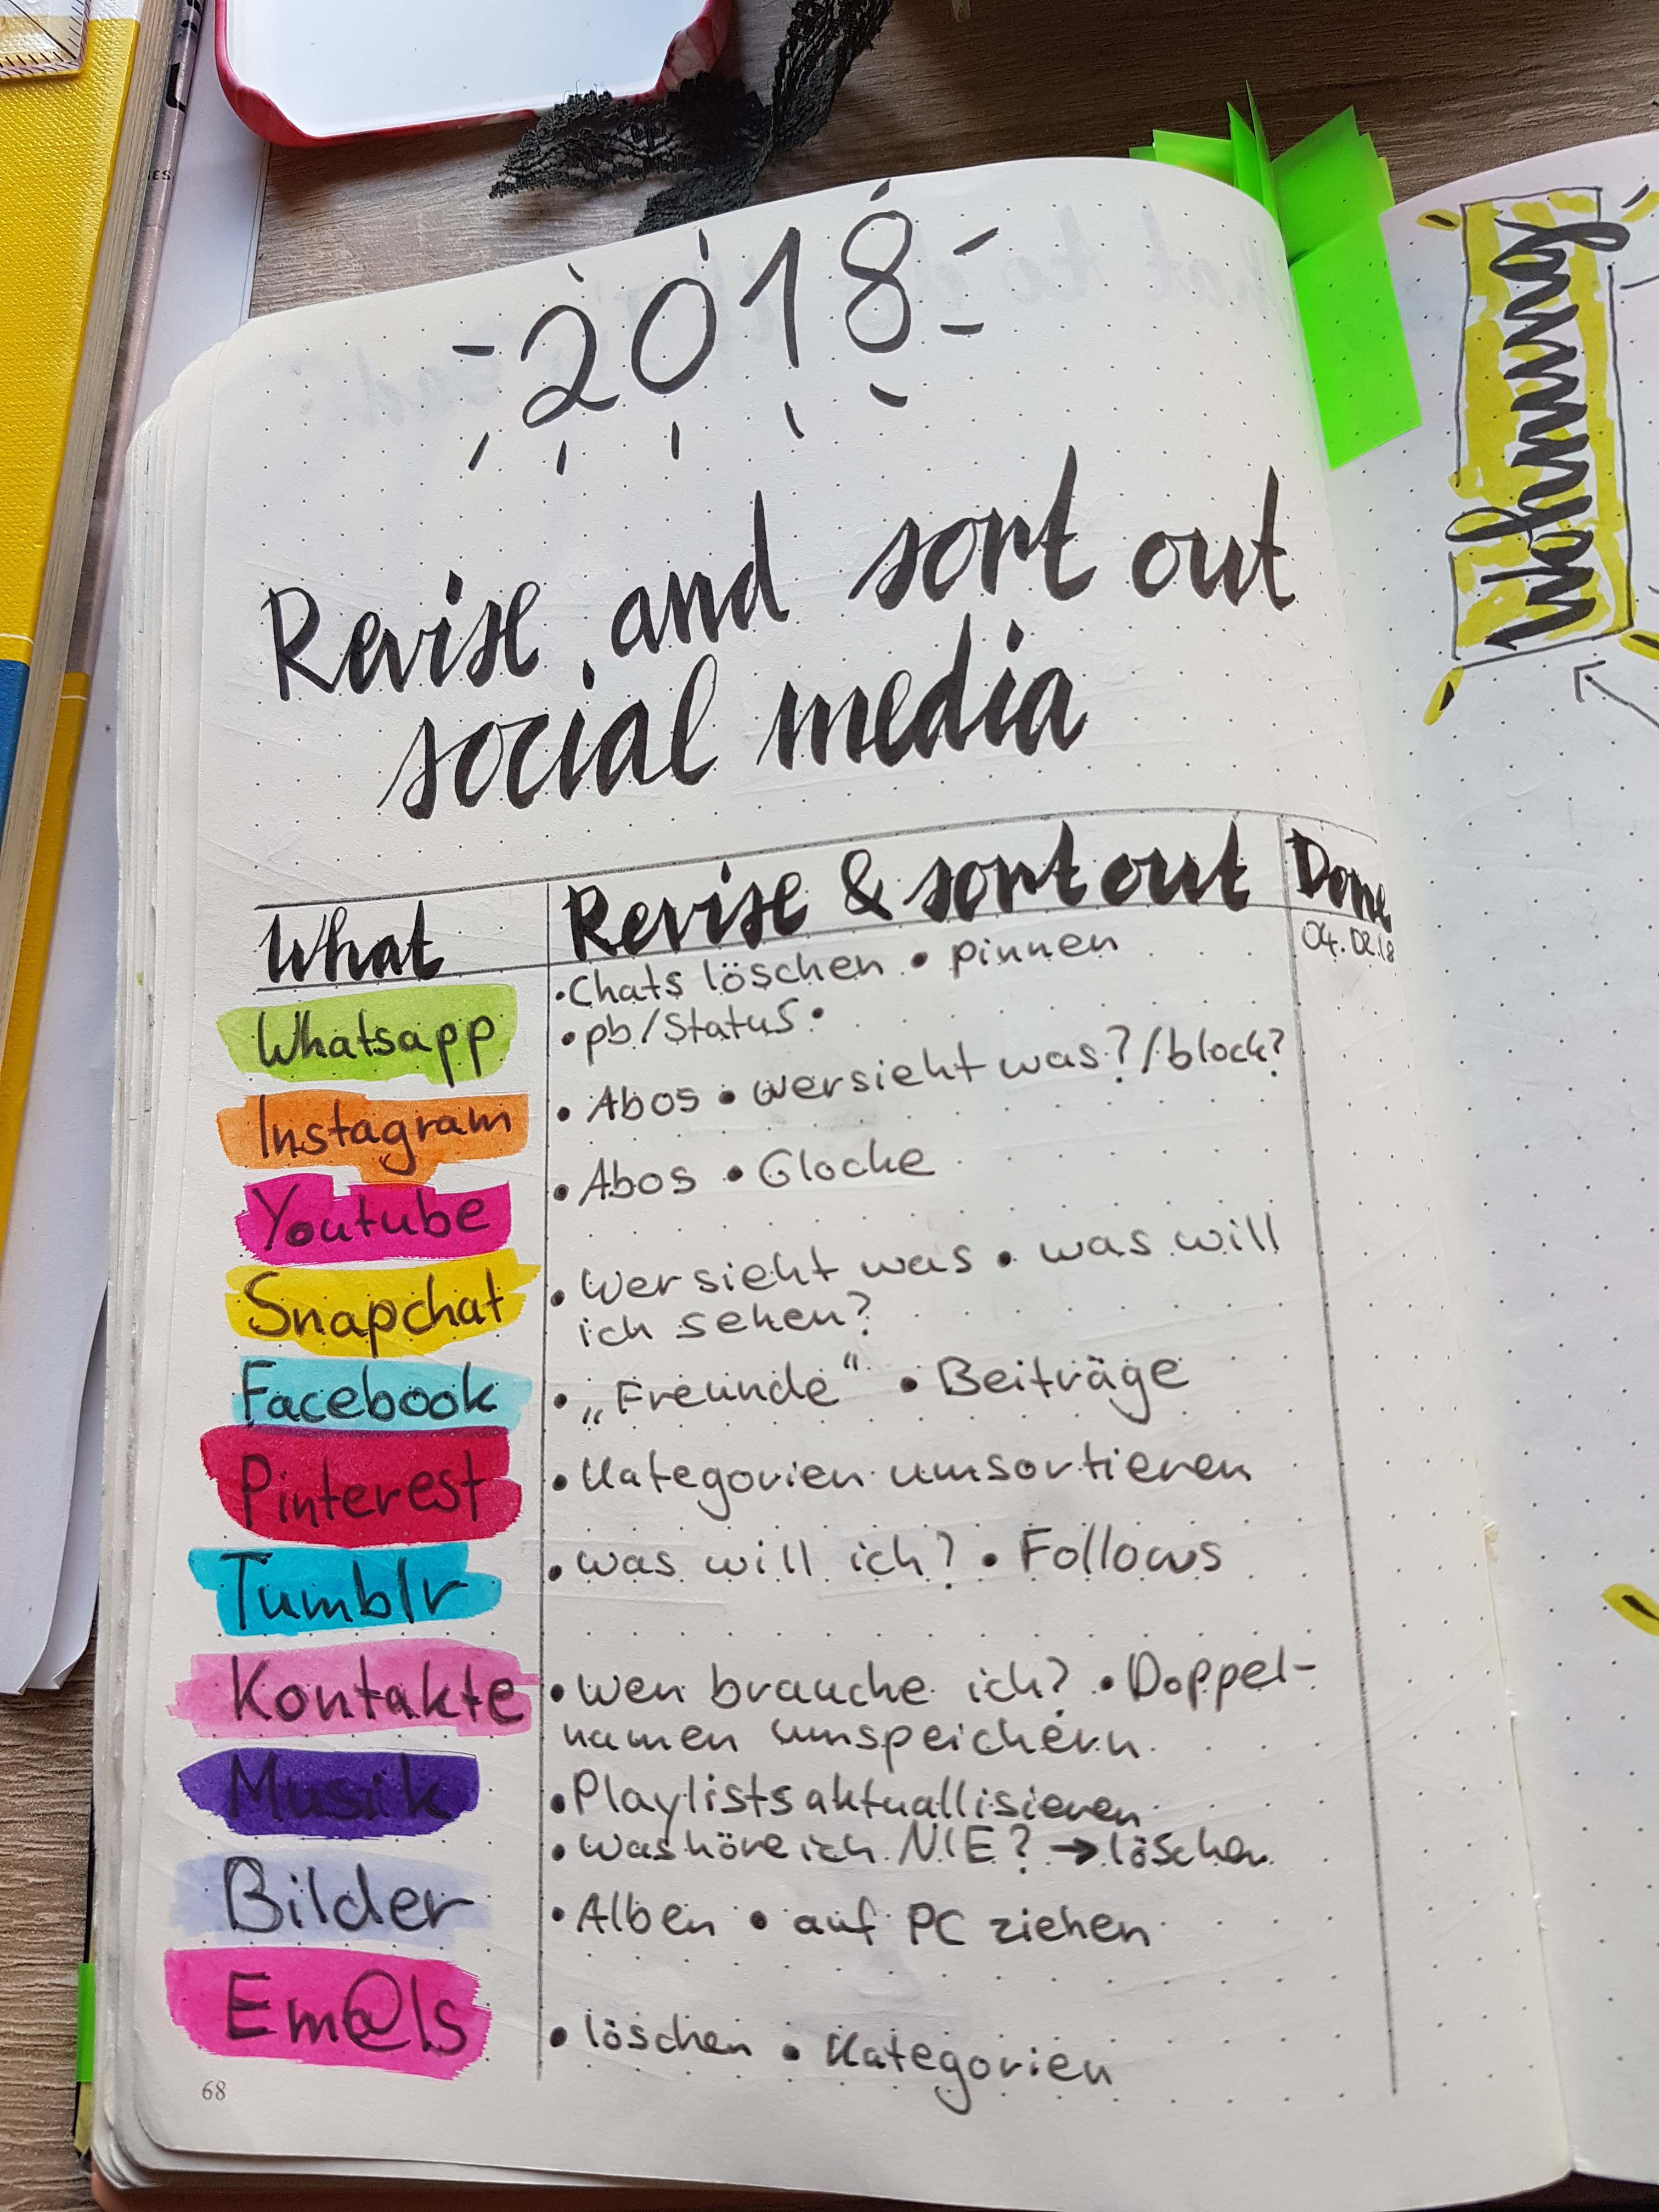 2018
Revise and sort out
social media
What Revise & sort out Done
Whatsapp •Chats löschen • pinnen 04.02.18
•pb/Status •
Instagram • Abos • wer sieht was?/block?
Youtube • Abos • Glocke
Snapchat • Wer sieht was • was will
ich sehen?
Facebook • „Freunde“ • Beiträge
Pinterest • Kategorien umsortieren
Tumblr • was will ich? • Follows
Kontakte • Wen brauche ich? • Doppel-
namen umspeichern
Musik • Playlists aktuallisieren
• Was höre ich NIE? → löschen
Bilder • Alben • auf PC ziehen
Em@ls • löschen • Kategorien
68